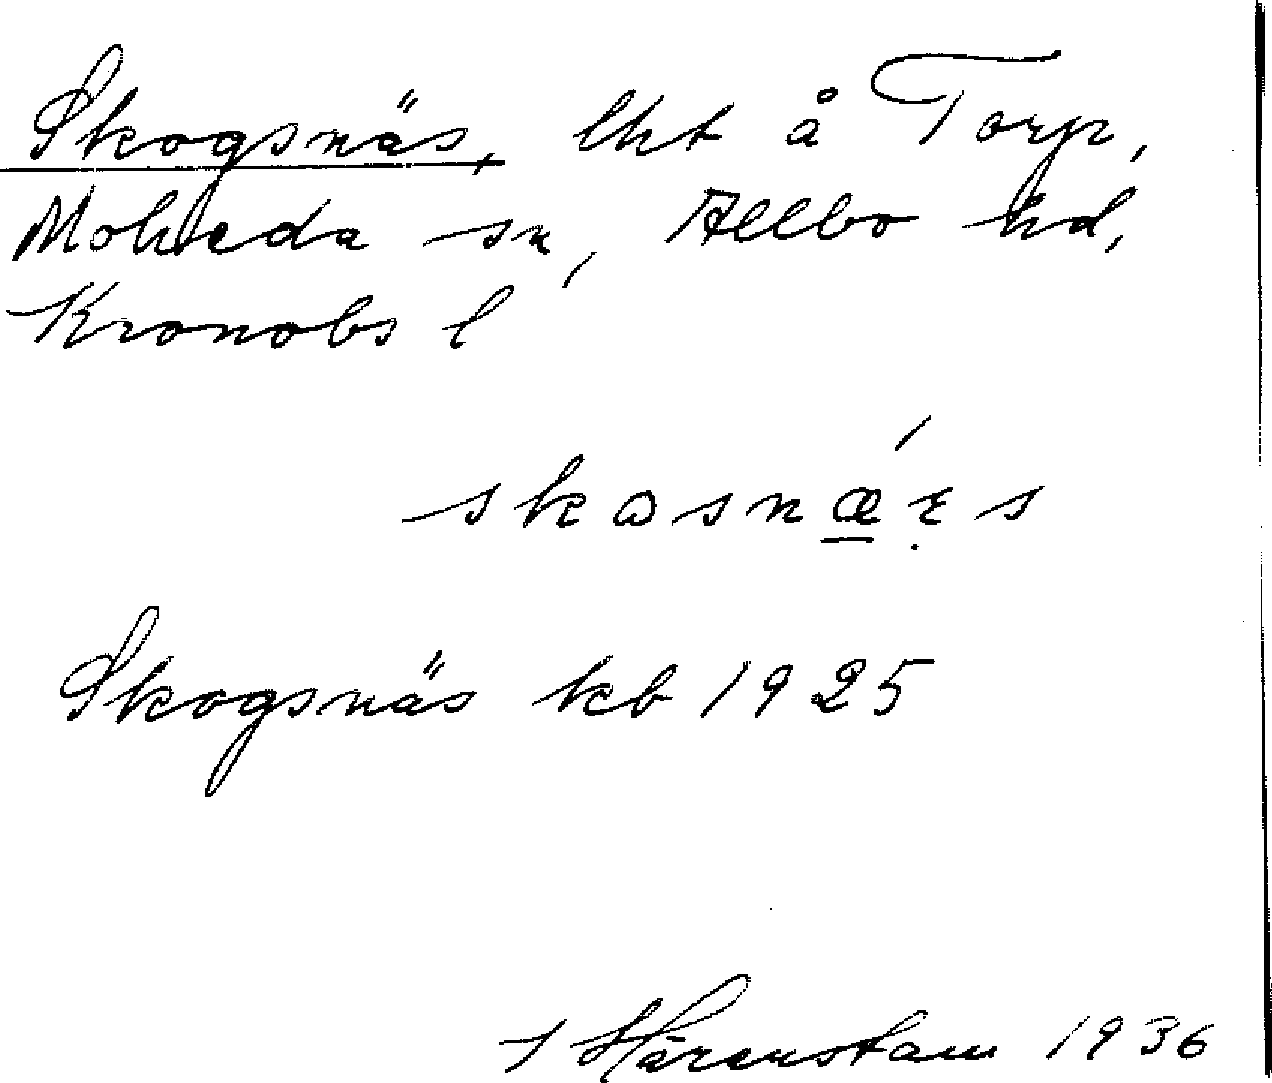 Skogsnäs, lht å Torp,
Moheda sn, Allbo hd,
Kronobs l
Skogsnäs kb 1925
Härenstam 1936